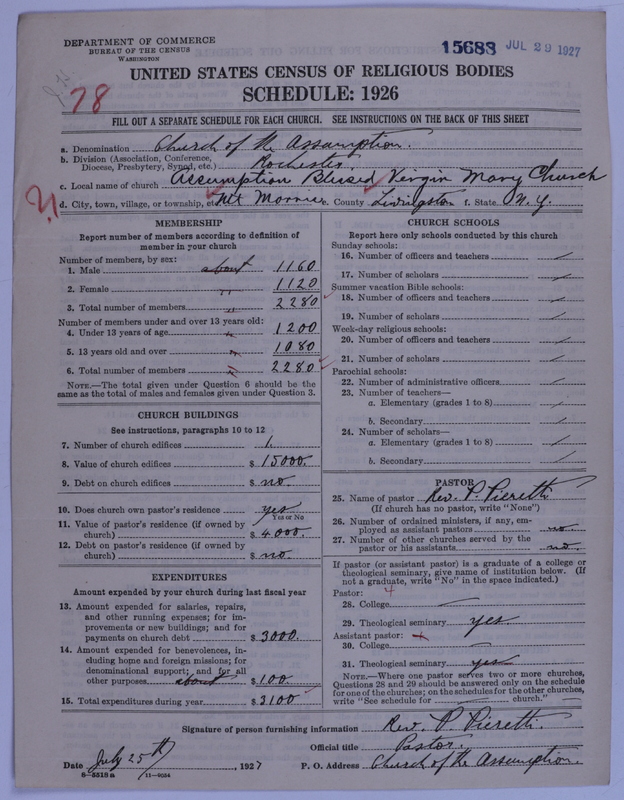 DEPARTMENT OF COMMERCE
BUREAU OF THE CENSUS
WASHINGTON
15688 JUL 29 1927
78
UNITED STATES CENSUS OF RELIGIOUS BODIES
SCHEDULE: 1926
FILL OUT A SEPARATE SCHEDULE FOR EACH CHURCH. SEE INSTRUCTIONS ON THE BACK OF THIS SHEET
a. Denomination Church of the Assumption.
b. Division (Association, Conference, Diocese, Presbytery, Synod, etc.) Rochester
c. Local name of church Assumption Blessed Virgin Mary Church
d. City, town, village, or township, etc. Mt Morris e. County Livingston f. State N.Y.
MEMBERSHIP
Report number of members according to definition of
member in your church
Number of members, by sex:
1. Male about 1160
2. Female " 1120
3. Total number of members " 2280
Number of members under and over 13 years old:
4. Under 13 years of age " 1200
5. 13 years old and over " 1080
6. Total number of members " 2280
NOTE.—The total given under Question 6 should be
same as the total of males and females given under Question 3.
CHURCH BUILDINGS
See instructions, paragraphs 10 to 12
7. Number of church edifices 1.
8. Value of church edifices $ 15000.
9. Debt on church edifices $ no.
10. Does church own pastor's residence yes
Yes or No
11. Value of pastor's residence (if owned by
church) $ 4000.
12. Debt on pastor's residence (if owned by
church) $ no.
EXPENDITURES
Amount expended by your church during last fiscal year
13. Amount expended for salaries, repairs,
and other running expenses; for im-
provements or new buildings; and for
payments on church debt $ 3000.
14. Amount expended for benevolences, in-
cluding home and foreign missions; for
denominational support; and for all
other purposes about $ 100
15. Total expenditures during year $ 3100
CHURCH SCHOOLS
Report here only schools conducted by this church
Sunday schools:
16. Number of officers and teachers /
17. Number of scholars /
Summer vacation Bible schools:
18. Number of officers and teachers /
19. Number of scholars /
Week-day religious schools:
20. Number of officers and teachers /
21. Number of scholars /
Parochial schools:
22. Number of administrative officers /
23. Number of teachers—
a. Elementary (grades 1 to 8) /
b. Secondary /
24. Number of scholars—
a. Elementary (grades 1 to 8) /
b. Secondary /
PASTOR
25. Name of pastor Rev. P. Pieretti
(If church has no pastor, write "None")
26. Number of ordained ministers, if any, em-
ployed as assistant pastors no.
27. Number of other churches served by the
pastor or his assistants no.
If pastor (or assistant pastor) is a graduate of a college or
theological seminary, give name of institution below. (If
not a graduate, write "No" in the space indicated.)
Pastor: 4
28. College —
29. Theological seminary yes
Assistant pastor:
30. College —
31. Theological seminary yes
NOTE.—Where one pastor serves two or more churches,
Questions 28 and 29 should be answered only on the schedule
for one of the churches; on the schedules for the other churches,
write "See schedule for — church." —
Signature of person furnishing information Rev. P. Pieretti.
Official title Pastor.
Date July 25th, 1927 P. O. Address Church of the Assumption.
6—5518a 11—9024